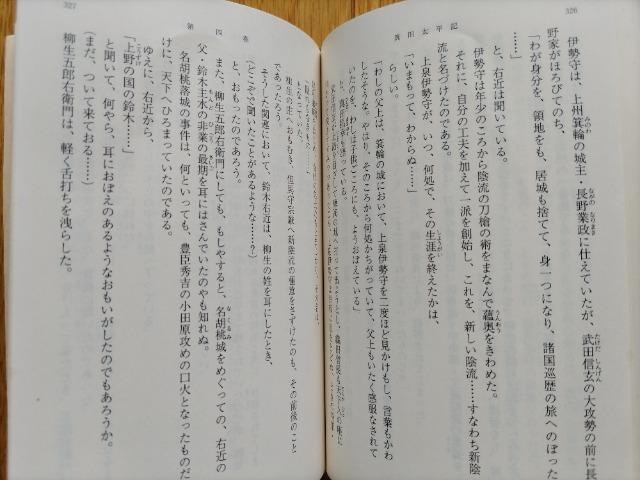 326
真田太平記
伊勢守は、上州箕輪の城主・長野業政に仕えていたが、武田信玄の大攻勢の前に長
野家がほろびてのち、
「わが身分を、領地をも、居城も捨てて、身一つになり、諸国巡歴の旅へのぼった
……」
と、右近は聞いている。
伊勢守は年少のころから陰流の刀槍の術をまなんで蘊奥をきわめた。
それに、自分の工夫を加えて一派を創始し、これを、新しい陰流……すなわち新陰
流と名づけたのである。
上泉伊勢守が、いつ、何処で、その生涯を終えたかは、
「いまもって、わからぬ……」
らしい。
「わしの父上は、箕輪の城において、上泉伊勢守を二度ほど見かけもし、言葉もかわ
したそうな。やはり、そのころから何処かちがっていて、父上もいたく感服なされて
いたのを、わしは子供ごころにも、ようおぼえている」
327
第四巻
そうした関連において、鈴木右近は、柳生の姓を耳にしたとき、
（どこぞで聞いたことがあるような……？）
と、おもったのであろう。
また、柳生五郎右衛門にしても、もしやすると、名胡桃城をめぐっての、右近の
父・鈴木主水の非業の最期を耳にはさんでいたのやも知れぬ。
名胡桃落城の事件は、何といっても、豊臣秀吉の小田原攻めの口火となったものだ
けに、天下へひろまっていたのである。
ゆえに、右近から、
「上野の国の鈴木……」
と聞いて、何やら、耳におぼえのあるようなおもいがしたのでもあろうか。
（まだ、ついて来ておる……）
柳生五郎右衛門は、軽く舌打ちを洩らした。